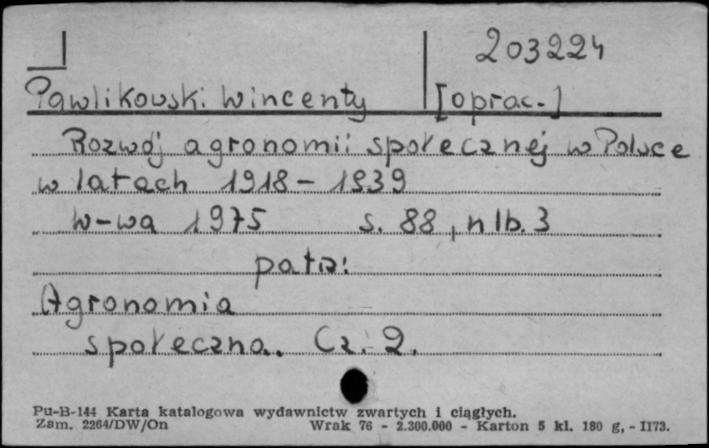 203224
Pawlikowski Wincenty [oprac.]
Rozwój agronomii społecznej w Polsce
w latach 1918-1939
W-wa 1975 s. 88, nlb. 3
patrz:
Agronomia
społeczna. Cz. 2.
Pu-B-144 Karta katalogowa wydawnictw zwartych i ciągłych.
Zam. 2264/DW/On Wrak 76 - 2.300.000 - Karton 5 kl. 180 g, - II73.